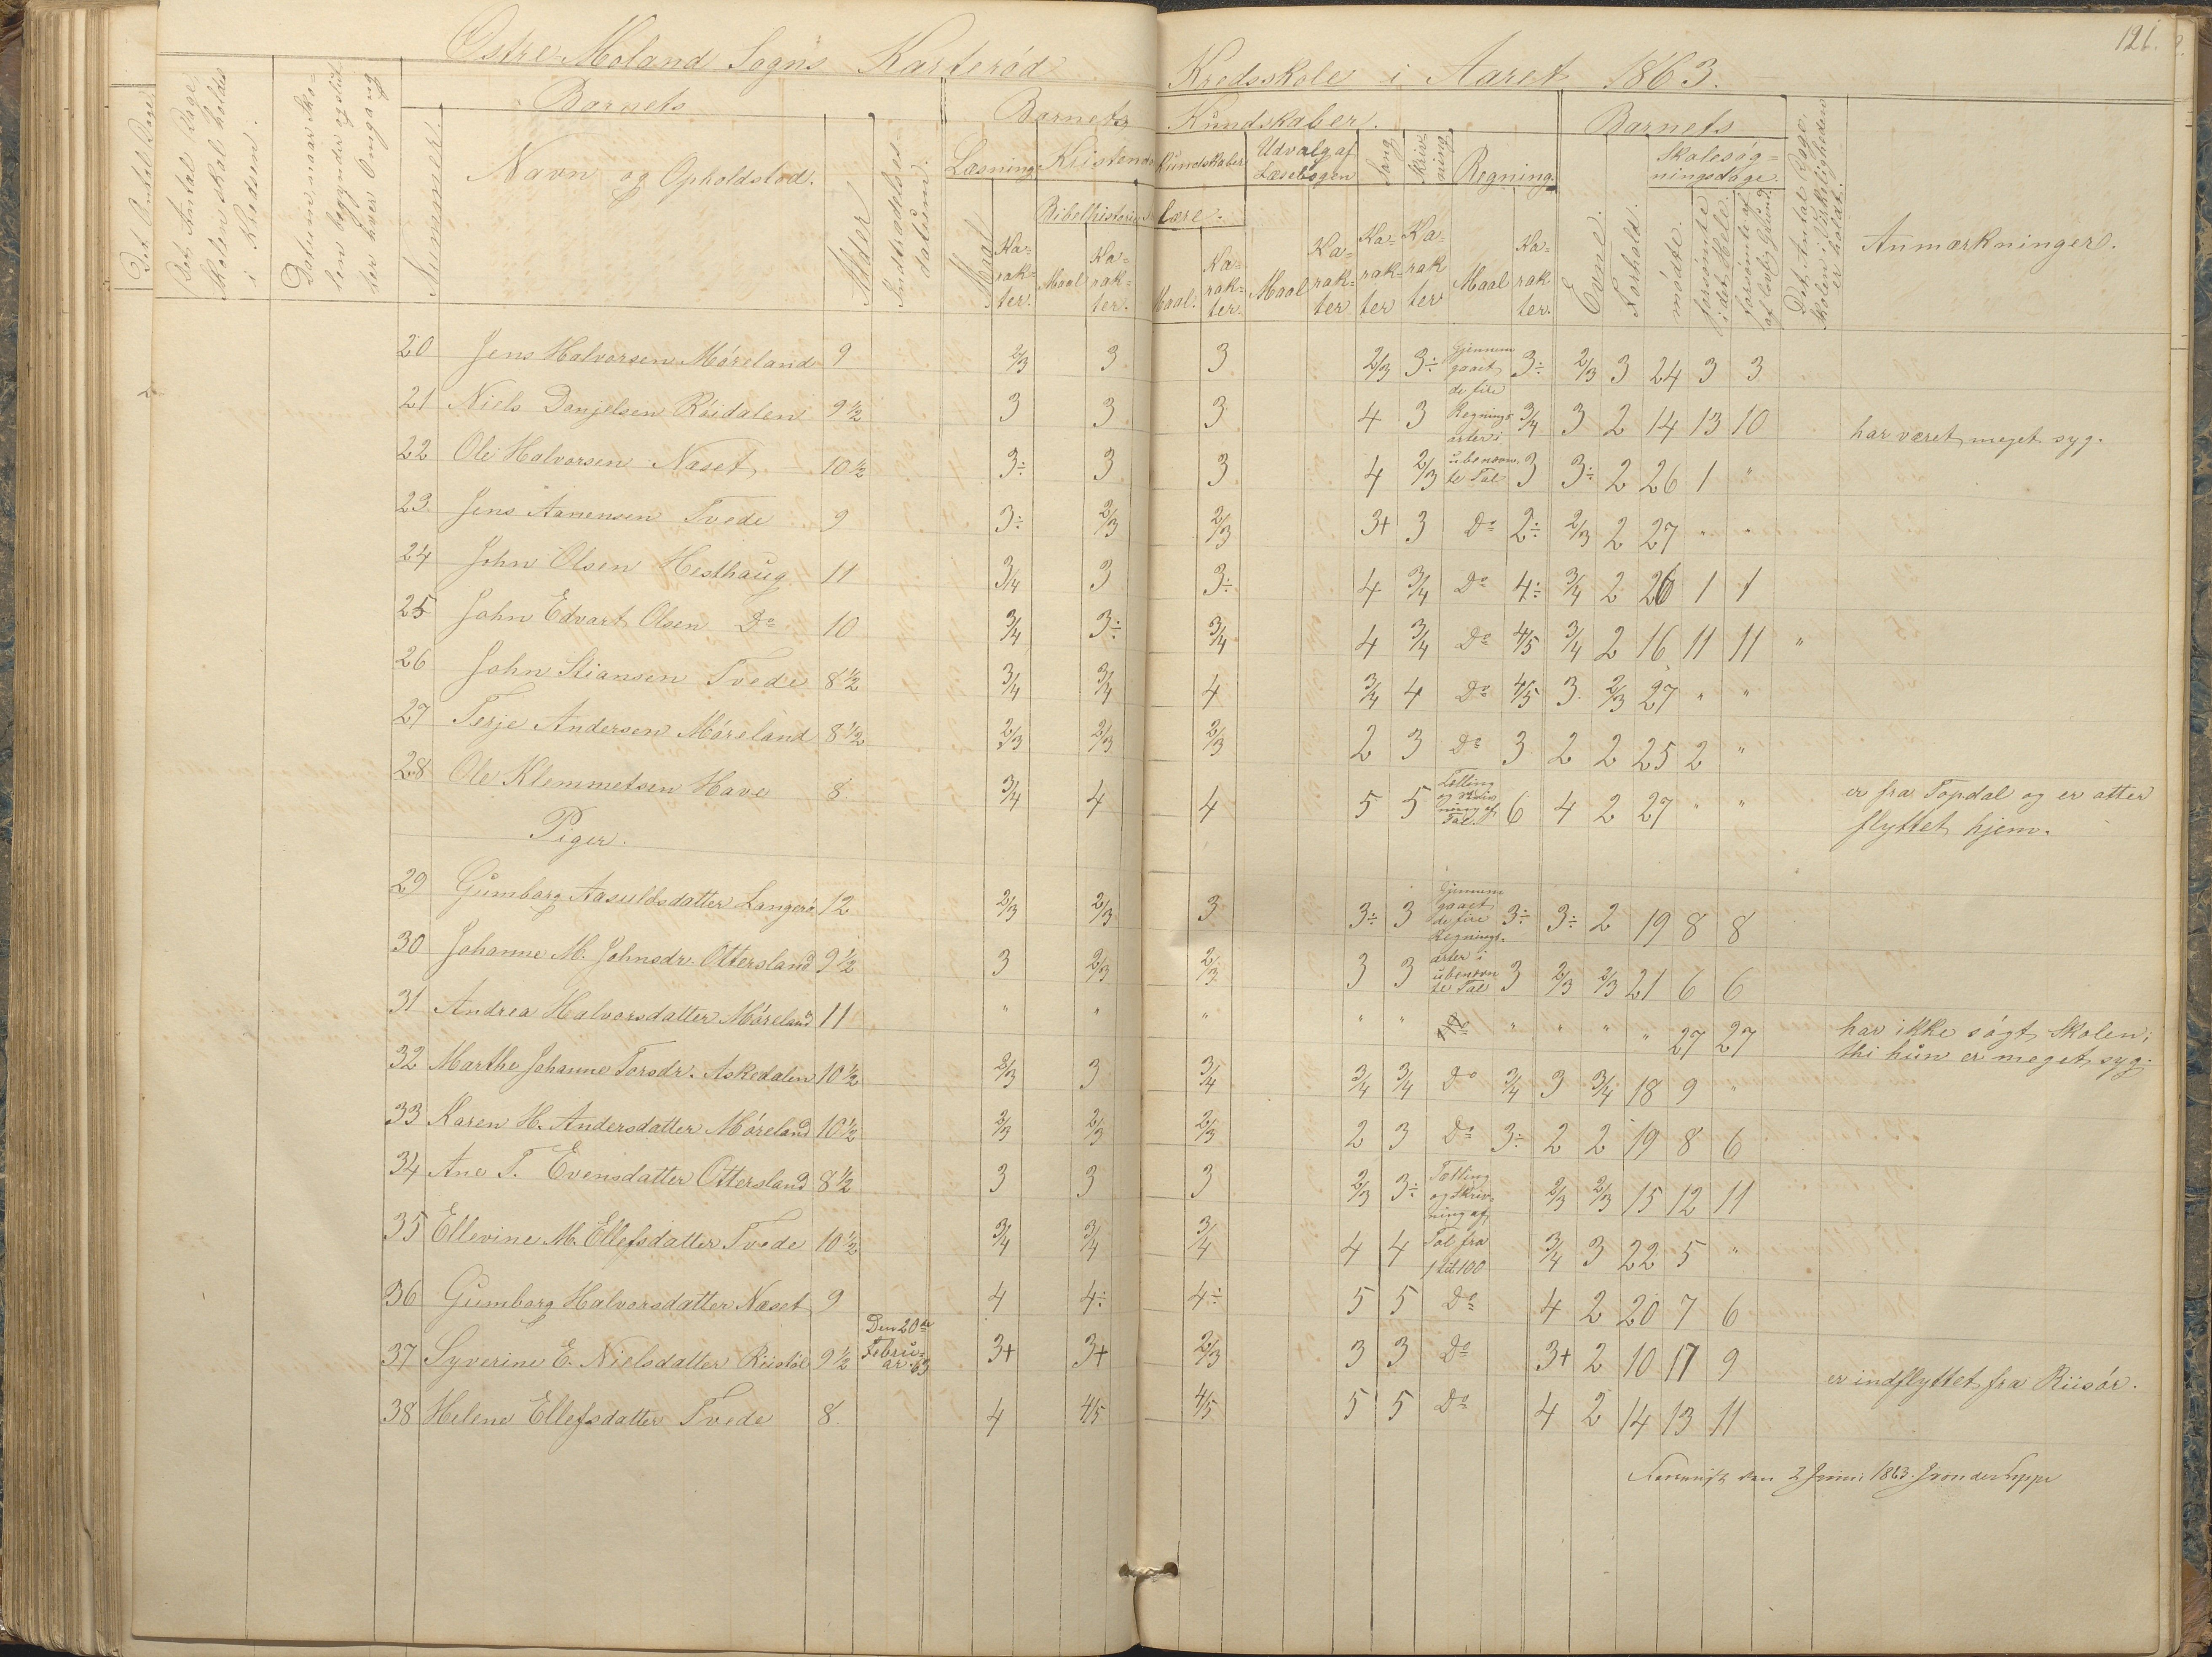 121.
Østre Moland Sogns Karterød Kredsskole i Aaret 1863.
Det Antal Dage Skolen skal holdes i Kredsen.
Datum naar Skolen begynder og slutter hver Omgang
Nummer.
Barnets
Navn og Opholdsted.
Alder
Indtrædelsesdatum.
Barnets Kundskaber.
Læsning
Maal
Karakter.
Kristendomskundskaber
Bibelhistorie
Maal
Karakter.
lære.
Maal.
Karakter.
Udvalg af Læsebogen
Maal
Karakter
Sang
Karakter
Skrivning
Karakter
Regning.
Maal
Karakter.
Barnets
Evne.
Forhold.
Skolesøgningsdage.
mødte.
forsømte i det Hele.
forsømte af af lovlig Grund.
Det Antal Dage Skolen i Virkeligheden er holdt.
Anmærkninger.
20 Jens Halvorsen Møreland 9 2/3 3 3 2/3 3÷ Gjennemgaaet de fire 3÷ 2/3 3 24 3 3
21 Niels Danjelsen Røidalen 9½ 3 3 3 4 3 Regningsarter i 3/4 3 2 14 13 10 har været meget syg.
22 Ole Halvorsen Næset 10½ 3÷ 3 3 4 2/3 ubenævnte Tal 3 3÷ 2 26 1 "
23 Jens Aanensen Tvede 9 3÷ 2/3 2/3 3+ 3 Do 2÷ 2/3 2 27 " "
24 John Olsen Hesthaug 11 3/4 3 3÷ 4 3/4 Do 4÷ 3/4 2 26 1 1
25 John Edvart Olsen Do 10 3/4 3÷ 3/4 4 3/4 Do 4/5 3/4 2 16 11 11 "
26 John Stiansen Tvede 8½ 3/4 3/4 4 3/4 4 Do 4/5 3 2/3 27 " "
27 Terje Andersen Møreland 8½ 2/3 2/3 2/3 2 3 Do 3 2 2 25 2 "
28 Ole Klemmetsen Have 8 3/4 4 4 5 5 Tælling og Skrivning af Tal. 6 4 2 27 " " er fra Topdal og er atter flyttet hjem.
Piger.
29 Gumborg Aasuldsdatter Langerø 12 2/3 2/3 3 3÷ 3 Gjennemgaaet de fire Regnings- 3÷ 3÷ 2 19 8 8
30 Johanne M. Johnsdr. Ottersland 9½ 3 2/3 2/3 3 3 arter i ubenævnte Tal 3 2/3 2/3 21 6 6
31 Andrea Halvorsdatter Møreland 11 " " " " " Do " " " " 27 27 har ikke søgt Skolen; thi hun er meget syg.
32 Marthe Johanne Torsdr. Askedalen 10½ 2/3 3 3/4 3/4 3/4 Do 3/4 3 3/4 18 9 "
33 Karen H. Andersdatter Møreland 10½ 2/3 2/3 2/3 2 3 Do 3÷ 2 2 19 8 6
34 Ane T. Evensdatter Ottersland 8½ 3 3 3 2/3 3÷ Tælling og Skrivning af 2/3 2/3 15 12 11
35 Ellevine M. Ellefsdatter Tvede 10½ 3/4 3/4 3/4 4 4 Tal fra 1 til 100 3/4 3 22 5 "
36 Gumborg Halvorsdatter Næset 9 4 4÷ 4÷ 5 5 Do 4 2 20 7 6
37 Syverine E. Nielsdatter Riistøl 9½ Den 20de Februar 63 3+ 3+ 2/3 3 3 Do 3+ 2 10 17 9 er indflyttet fra Riisør.
38 Helene Ellefsdatter Tvede 8. 4 4/5 4/5 5 5 Do 4 2 14 13 11
den 2 Juni 1863.